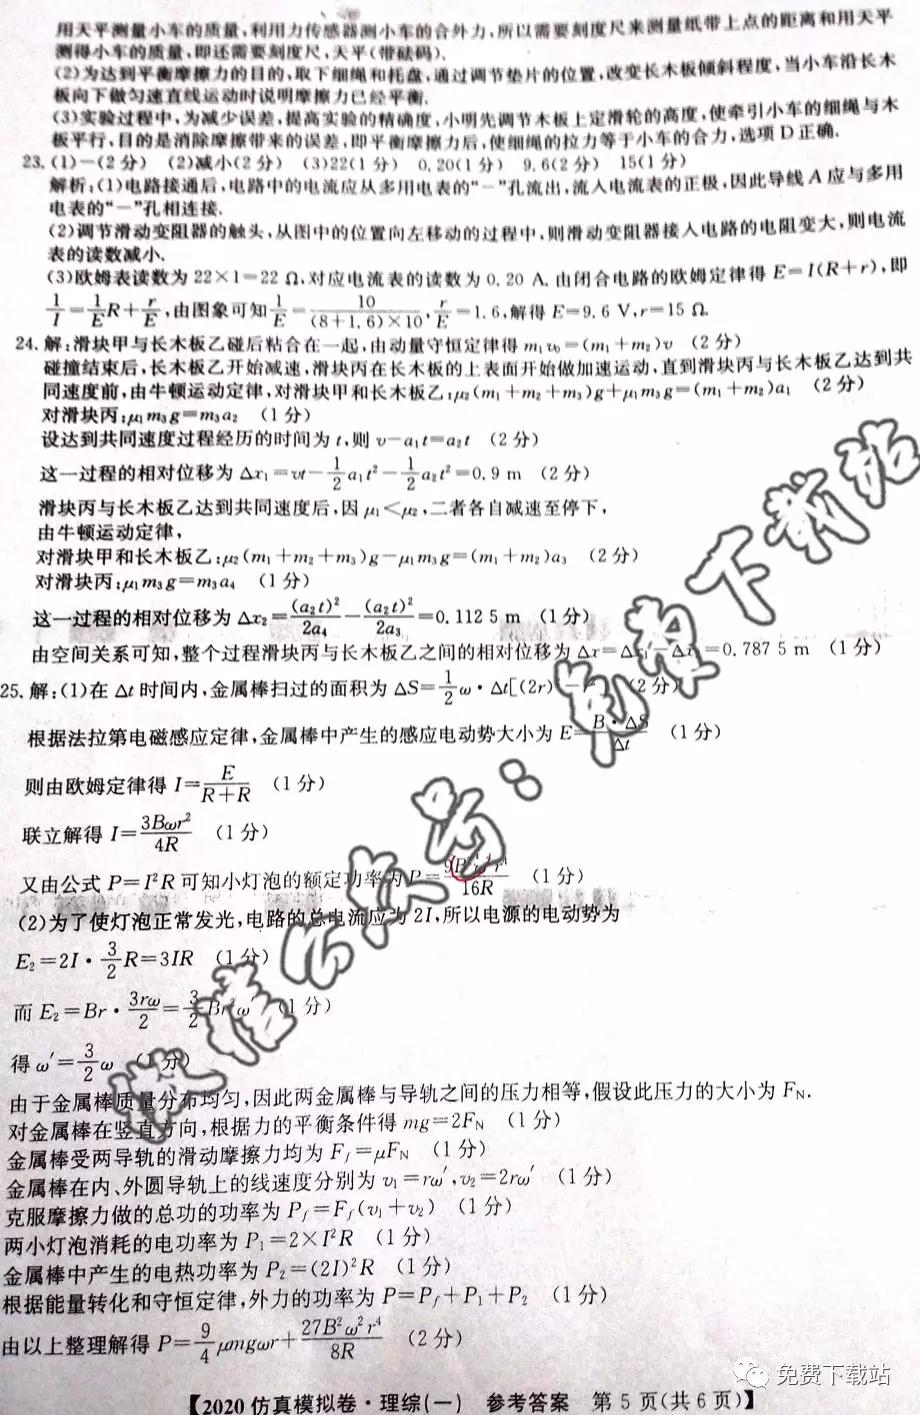 用天平测量小车的质量,利用力传感器测小车的合外力,所以需要刻度尺来测量纸带上点的距离和用天平
测得小车的质量,即还需要刻度尺,天平(带砝码).
(2)为达到平衡摩擦力的目的,取下细绳和托盘,通过调节垫片的位置,改变长木板倾斜程度,当小车沿长木
板向下做匀速直线运动时说明摩擦力已经平衡.
(3)实验过程中,为减少误差,提高实验的精确度,小明先调节木板上定滑轮的高度,使牵引小车的细绳与木
板平行,目的是消除摩擦带来的误差,即平衡摩擦力后,使细绳的拉力等于小车的合力,选项D正确.
23.(1)—(2分) (2)减小(2分) (3)22(1分) 0.20(1分) 9.6(2分) 15(1分)
解析:(1)电路接通后,电路中的电流应从多用电表的“—”孔流出,流入电流表的正极,因此导线A应与多用
电表的“—”孔相连接.
(2)调节滑动变阻器的触头,从图中的位置向左移动的过程中,则滑动变阻器接入电路的电阻变大,则电流
表的读数减小.
(3)欧姆表读数为22×1=22 Ω,对应电流表的读数为0.20 A.由闭合电路的欧姆定律得E=I(R+r),即
1/I=1/E R+r/E,由图象可知1/E=10/((8+1.6)×10),r/E=1.6,解得E=9.6 V,r=15 Ω.
24.解:滑块甲与长木板乙碰后粘合在一起,由动量守恒定律得m₁v₀=(m₁+m₂)v (2分)
碰撞结束后,长木板乙开始减速,滑块丙在长木板的上表面开始做加速运动,直到滑块丙与长木板乙达到共
同速度前,由牛顿运动定律,对滑块甲和长木板乙:μ₂(m₁+m₂+m₃)g+μ₁m₃g=(m₁+m₂)a₁ (2分)
对滑块丙:μ₁m₃g=m₃a₂ (1分)
设达到共同速度过程经历的时间为t,则v-a₁t=a₂t (2分)
这一过程的相对位移为Δx₁=vt-1/2 a₁t²-1/2 a₂t²=0.9 m (2分)
滑块丙与长木板乙达到共同速度后,因μ₁<μ₂,二者各自减速至停下,
由牛顿运动定律,
对滑块甲和长木板乙:μ₂(m₁+m₂+m₃)g-μ₁m₃g=(m₁+m₂)a₃ (2分)
对滑块丙:μ₁m₃g=m₃a₄ (1分)
这一过程的相对位移为Δx₂=(a₂t)²/2a₄-(a₂t)²/2a₃=0.112 5 m (1分)
由空间关系可知,整个过程滑块丙与长木板乙之间的相对位移为Δx=Δx₁-Δx =0.787 5 m (1分)
25.解:(1)在Δt时间内,金属棒扫过的面积为ΔS=1/2 ω·Δt[(2r) (2分)
根据法拉第电磁感应定律,金属棒中产生的感应电动势大小为E=B·ΔS/Δt (1分)
则由欧姆定律得I=E/(R+R) (1分)
联立解得I=3Bωr²/4R (1分)
又由公式P=I²R可知小灯泡的额定功率为P= /16R (1分)
(2)为了使灯泡正常发光,电路的总电流应为2I,所以电源的电动势为
E₂=2I·3/2 R=3IR (1分)
而E₂=Br·3rω/2=3/2 Br²ω′ (1分)
得ω′=3/2 ω (1分)
由于金属棒质量分布均匀,因此两金属棒与导轨之间的压力相等,假设此压力的大小为F_N.
对金属棒在竖直方向,根据力的平衡条件得mg=2F_N (1分)
金属棒受两导轨的滑动摩擦力均为F_f=μF_N (1分)
金属棒在内、外圆导轨上的线速度分别为v₁=rω′,v₂=2rω′ (1分)
克服摩擦力做的总功的功率为P_f=F_f(v₁+v₂) (1分)
两小灯泡消耗的电功率为P₁=2×I²R (1分)
金属棒中产生的电热功率为P₂=(2I)²R (1分)
根据能量转化和守恒定律,外力的功率为P=P_f+P₁+P₂ (1分)
由以上整理解得P=9/4 μmgωr+27B²ω²r⁴/8R (2分)
微信公众号:免费下载站
免费下载站
【2020仿真模拟卷·理综(一) 参考答案 第5页(共6页)】